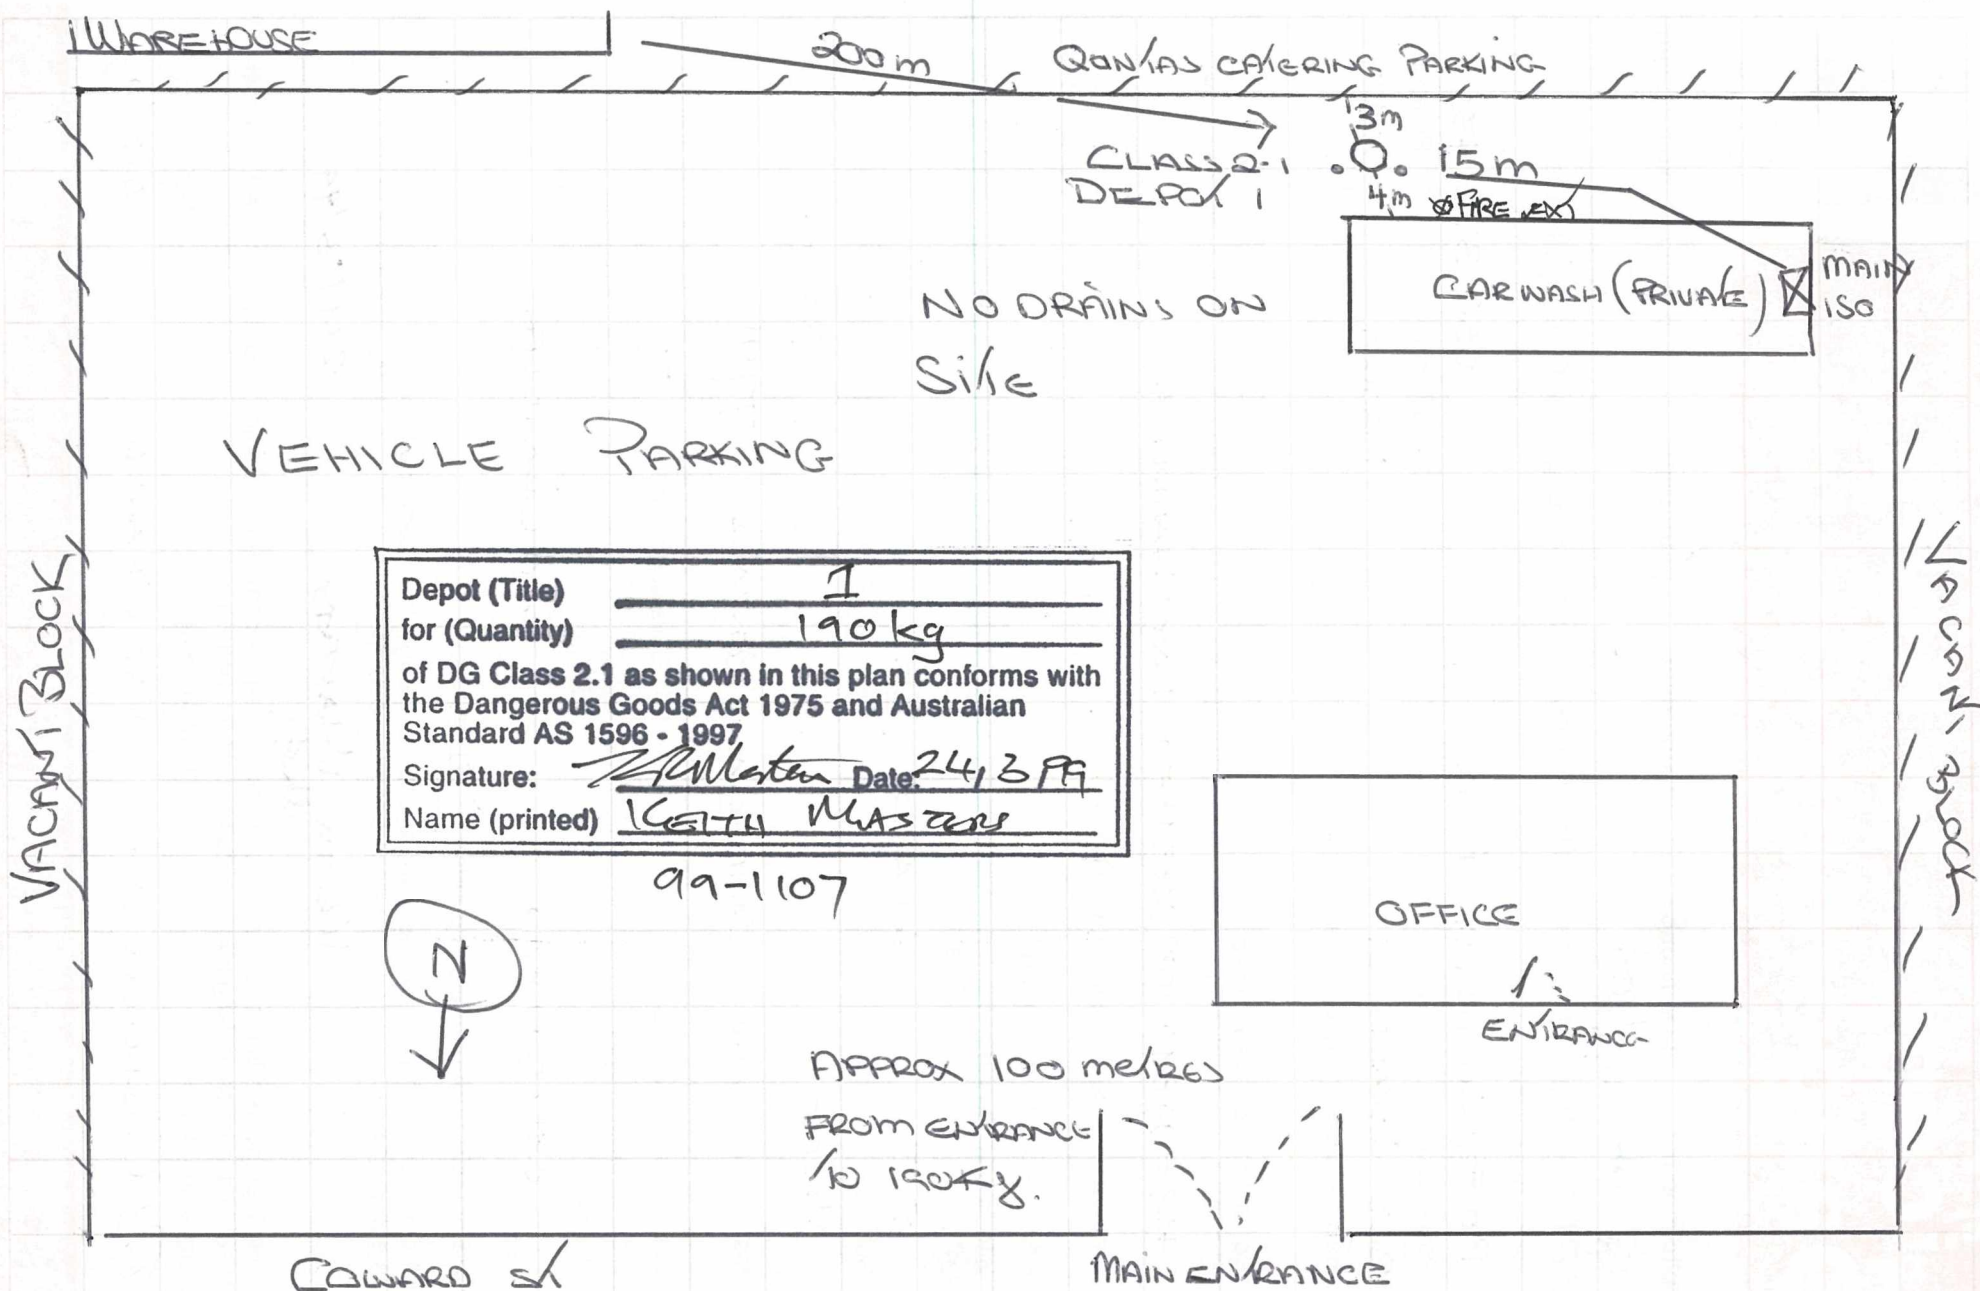 WAREHOUSE
200m
QANTAS CATERING PARKING
3m
CLASS 2.1
DEPOT 1
15m
4m
FIRE EXT
CAR WASH (PRIVATE)
MAIN
ISO
NO DRAINS ON
SitE
VEHICLE PARKING
VACANT BLOCK
VACANT BLOCK
Depot (Title) 1
for (Quantity) 190 kg
of DG Class 2.1 as shown in this plan conforms with
the Dangerous Goods Act 1975 and Australian
Standard AS 1596 - 1997
Signature: Date: 24/3/99
Name (printed) KEITH MASTERS
99-1107
N
OFFICE
ENTRANCE
APPROX 100 metRES
FROM ENTRANCE
to 190Kg.
COWARD St
MAIN ENTRANCE